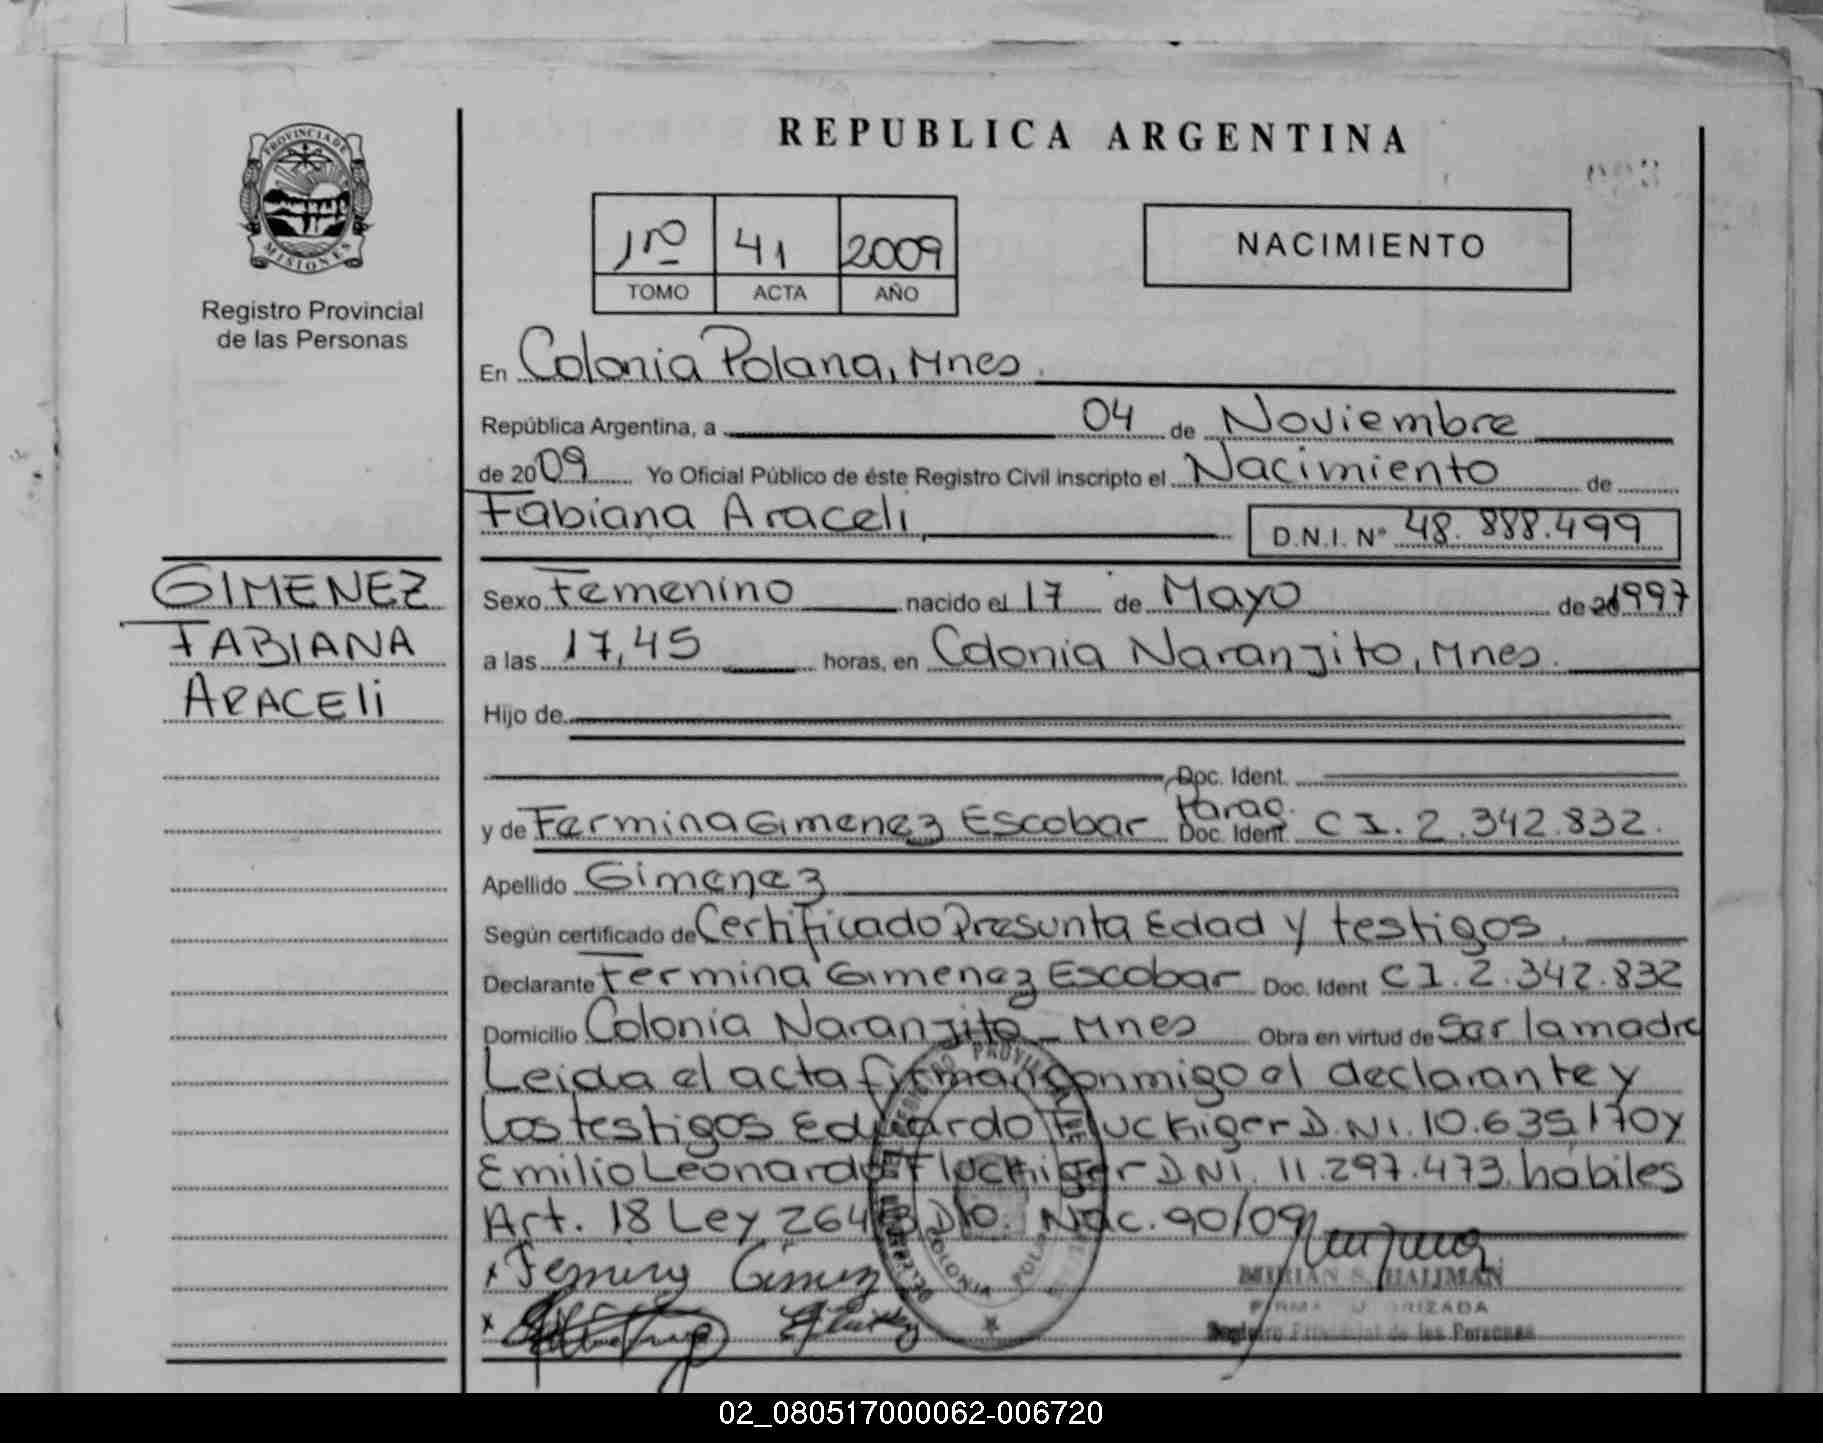 REPUBLICA ARGENTINA
PROVINCIA DE
MISIONES
Registro Provincial
de las Personas
1ro 41 2009
TOMO ACTA AÑO
NACIMIENTO
En Colonia Polana, Mnes.
República Argentina, a 04 de Noviembre
de 2009 Yo Oficial Público de éste Registro Civil inscripto el Nacimiento de
Fabiana Araceli,
D.N.I. Nº 48.888.499
GIMENEZ
FABIANA
ARACELI
Sexo Femenino nacido el 17 de Mayo de 1997
a las 17,45 horas, en Colonia Naranjito, Mnes.
Hijo de
Doc. Ident.
y de Fermina Gimenez Escobar Parag. Doc. Ident. C I. 2.342.832.
Apellido Gimenez
Según certificado de Certificado Presunta Edad y testigos.
Declarante Fermina Gimenez Escobar Doc. Ident C I. 2.342.832
Domicilio Colonia Naranjito - Mnes Obra en virtud de Ser la madre
Leida el acta firman conmigo el declarante y
los testigos Eduardo Fluckiger D.NI. 10.635.170 y
Emilio Leonardo Fluckiger DNI. 11.297.473. hábiles
Art. 18 Ley 26413 Dto. Nac. 90/09
COLONIA
MIRIAN S. HALJMAN
FIRMA AUTORIZADA
Registro Provincial de las Personas
02_080517000062-006720